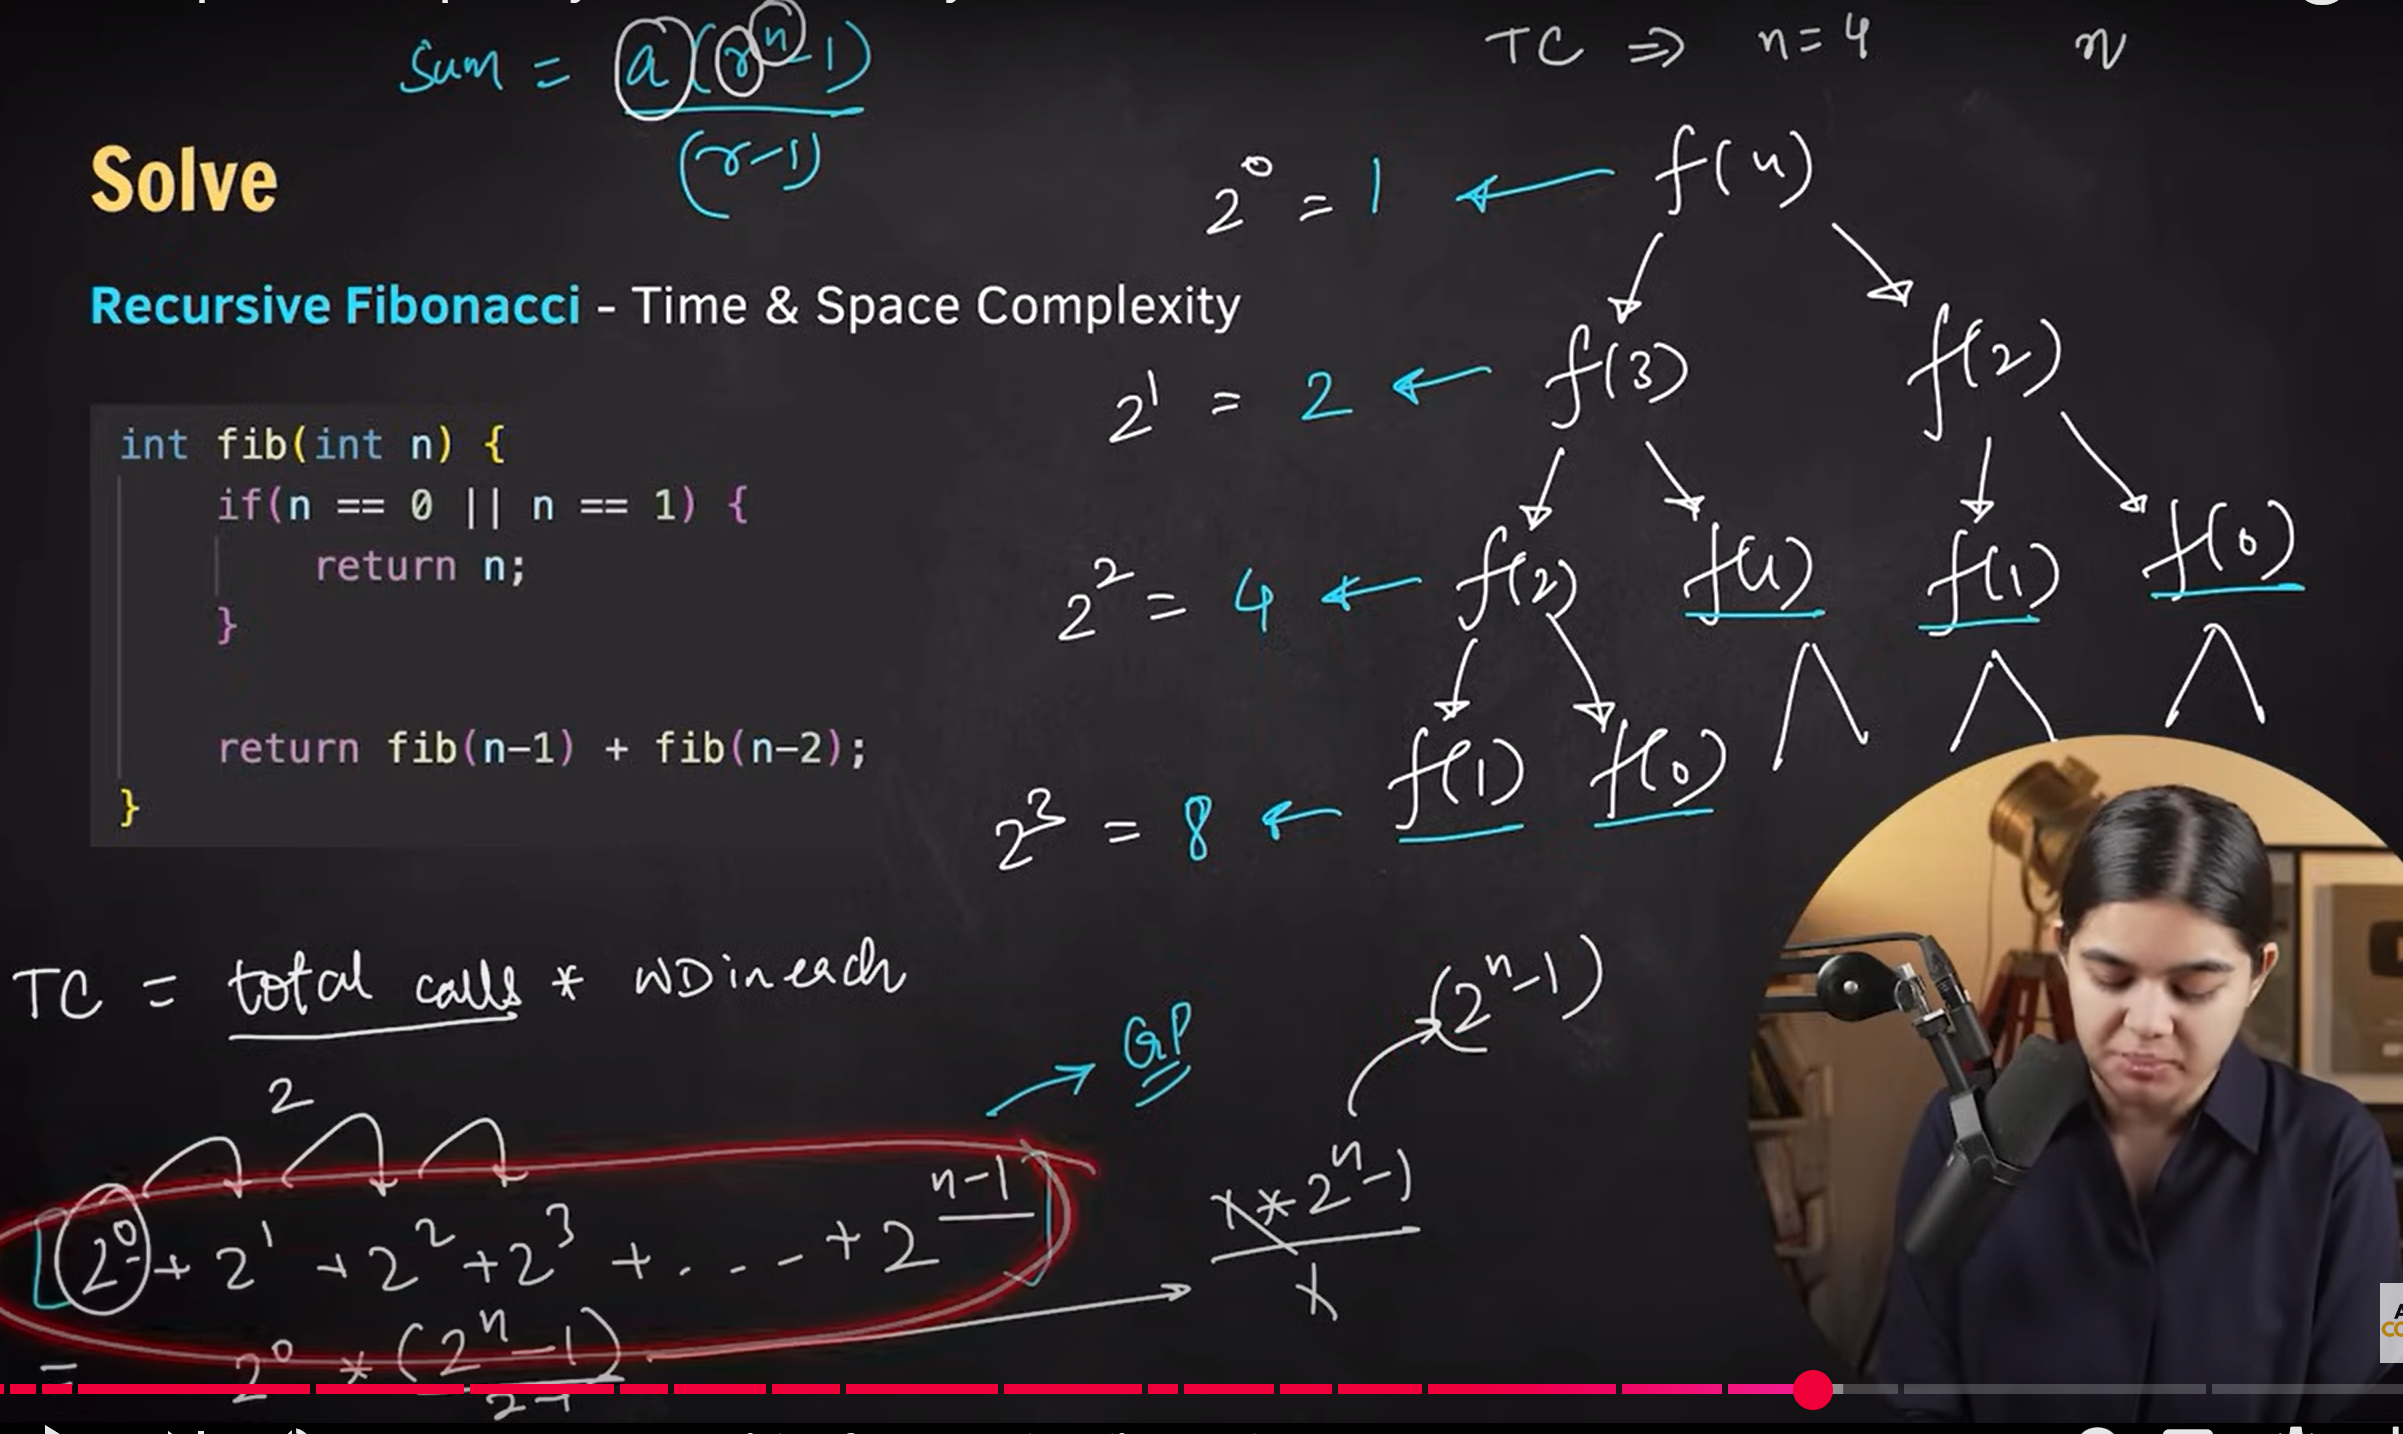 Sum = a(r^n-1)
(r-1)
TC ⇒ n=4 n
Solve
Recursive Fibonacci - Time & Space Complexity
int fib(int n) {
if(n == 0 || n == 1) {
return n;
}
return fib(n-1) + fib(n-2);
}
2^0 = 1 ← f(4)
2^1 = 2 ← f(3) f(2)
2^2 = 4 ← f(2) f(1) f(1) f(0)
2^3 = 8 ← f(1) f(0)
TC = total calls * WD in each
2
2^0 + 2^1 + 2^2 + 2^3 + . . . + 2^n-1
→ GP
= 2^0 * (2^n - 1)
2-1
1 * 2^n - 1
1
(2^n - 1)